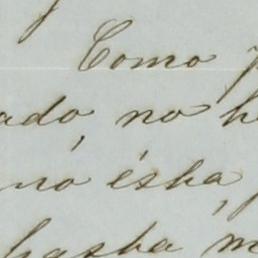 Como
ado, no h
nó ésta,
hasta m